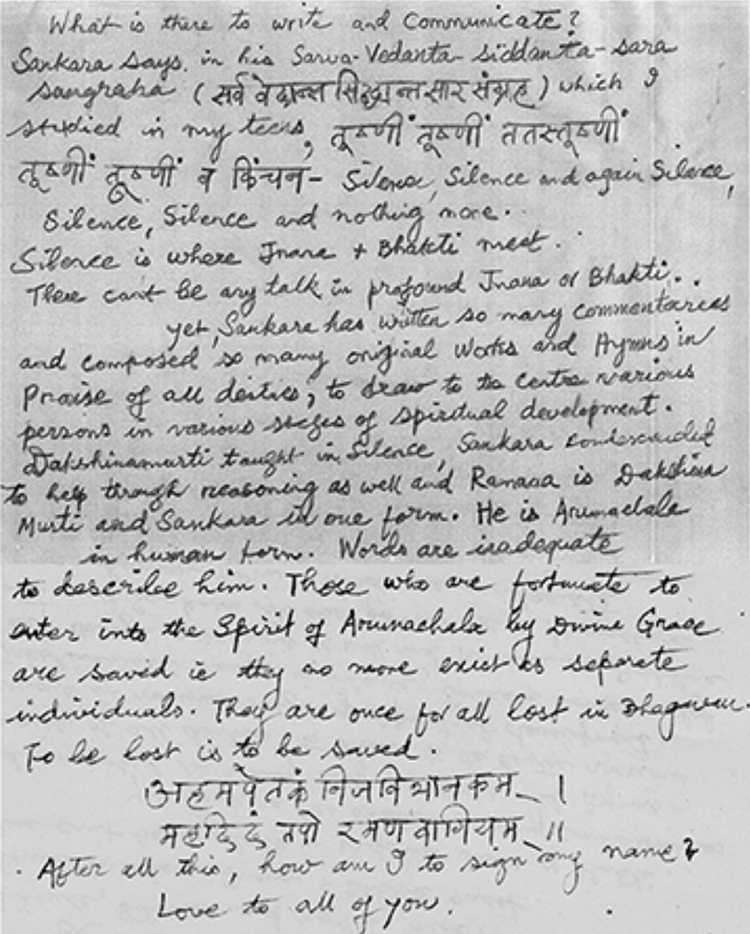 What is there to write and Communicate?
Sankara says, in his Sarva-Vedanta-siddanta-sara
sangraha (सर्व वेदान्त सिद्धान्तसार संग्रह) which I
studied in my teens, तूष्णीं तूष्णीं ततस्तूष्णीं
तूष्णीं तूष्णीं व किंचन - Silence, Silence and again Silence,
Silence, Silence and nothing more.
Silence is where Jnana + Bhakti meet.
There cant be any talk in profound Jnana or Bhakti..
yet, Sankara has written so many commentaries
and composed so many original works and Hymns in
Praise of all deities; to draw to the centre various
persons in various stages of spiritual development.
Dakshinamurti taught in Silence, Sankara condescended
to help through reasoning as well and Ramana is Dakshina
Murti and Sankara in one form. He is Arunachala
in human form. Words are inadequate
to describe him. Those who are fortunate to
enter into the Spirit of Arunachala by Divine Grace
are saved ie they no more exist as separate
individuals. They are once for all lost in Bhagavan.
To be lost is to be saved.
अहमपेतकं निजविभानकम् ।
महदिदं तपो रमणवागियम् ॥
After all this, how am I to sign my name?
Love to all of you.